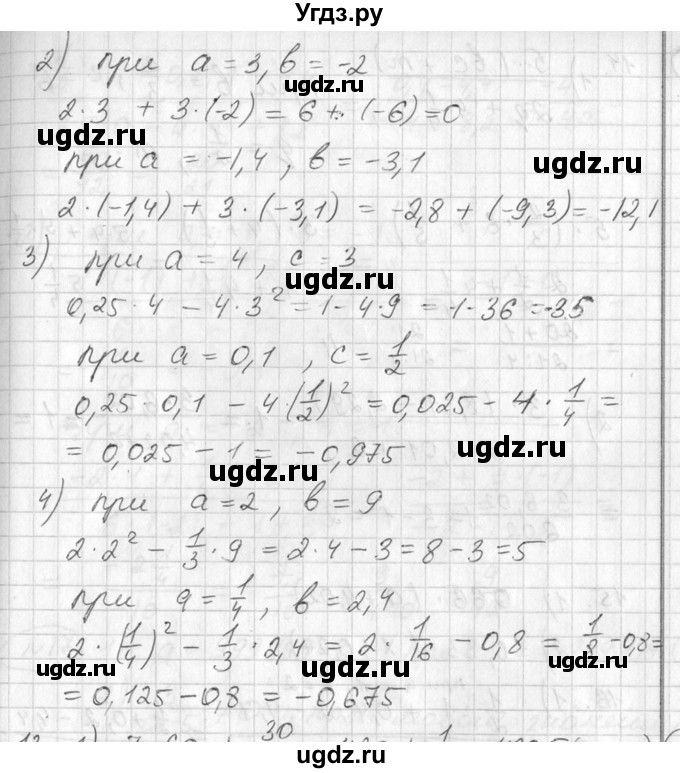 Угдз.ру
2) при a = 3, b = -2
2·3 + 3·(-2) = 6 + (-6) = 0
при a = -1,4, b = -3,1
2·(-1,4) + 3·(-3,1) = -2,8 + (-9,3) = -12,1
3) при a = 4, c = 3
0,25·4 - 4·3² = 1 - 4·9 = 1 - 36 = -35
при a = 0,1, c = 1/2
0,25·0,1 - 4·(1/2)² = 0,025 - 4·1/4 =
= 0,025 - 1 = -0,975
4) при a = 2, b = 9
2·2² - 1/3·9 = 2·4 - 3 = 8 - 3 = 5
при a = 1/4, b = 2,4
2·(1/4)² - 1/3·2,4 = 2·1/16 - 0,8 = 1/8 - 0,8 =
= 0,125 - 0,8 = -0,675
ugdz.ru
ugdz.ru
ugdz.ru
ugdz.ru
ugdz.ru
ugdz.ru
ugdz.ru
ugdz.ru
ugdz.ru
ugdz.ru
ugdz.ru